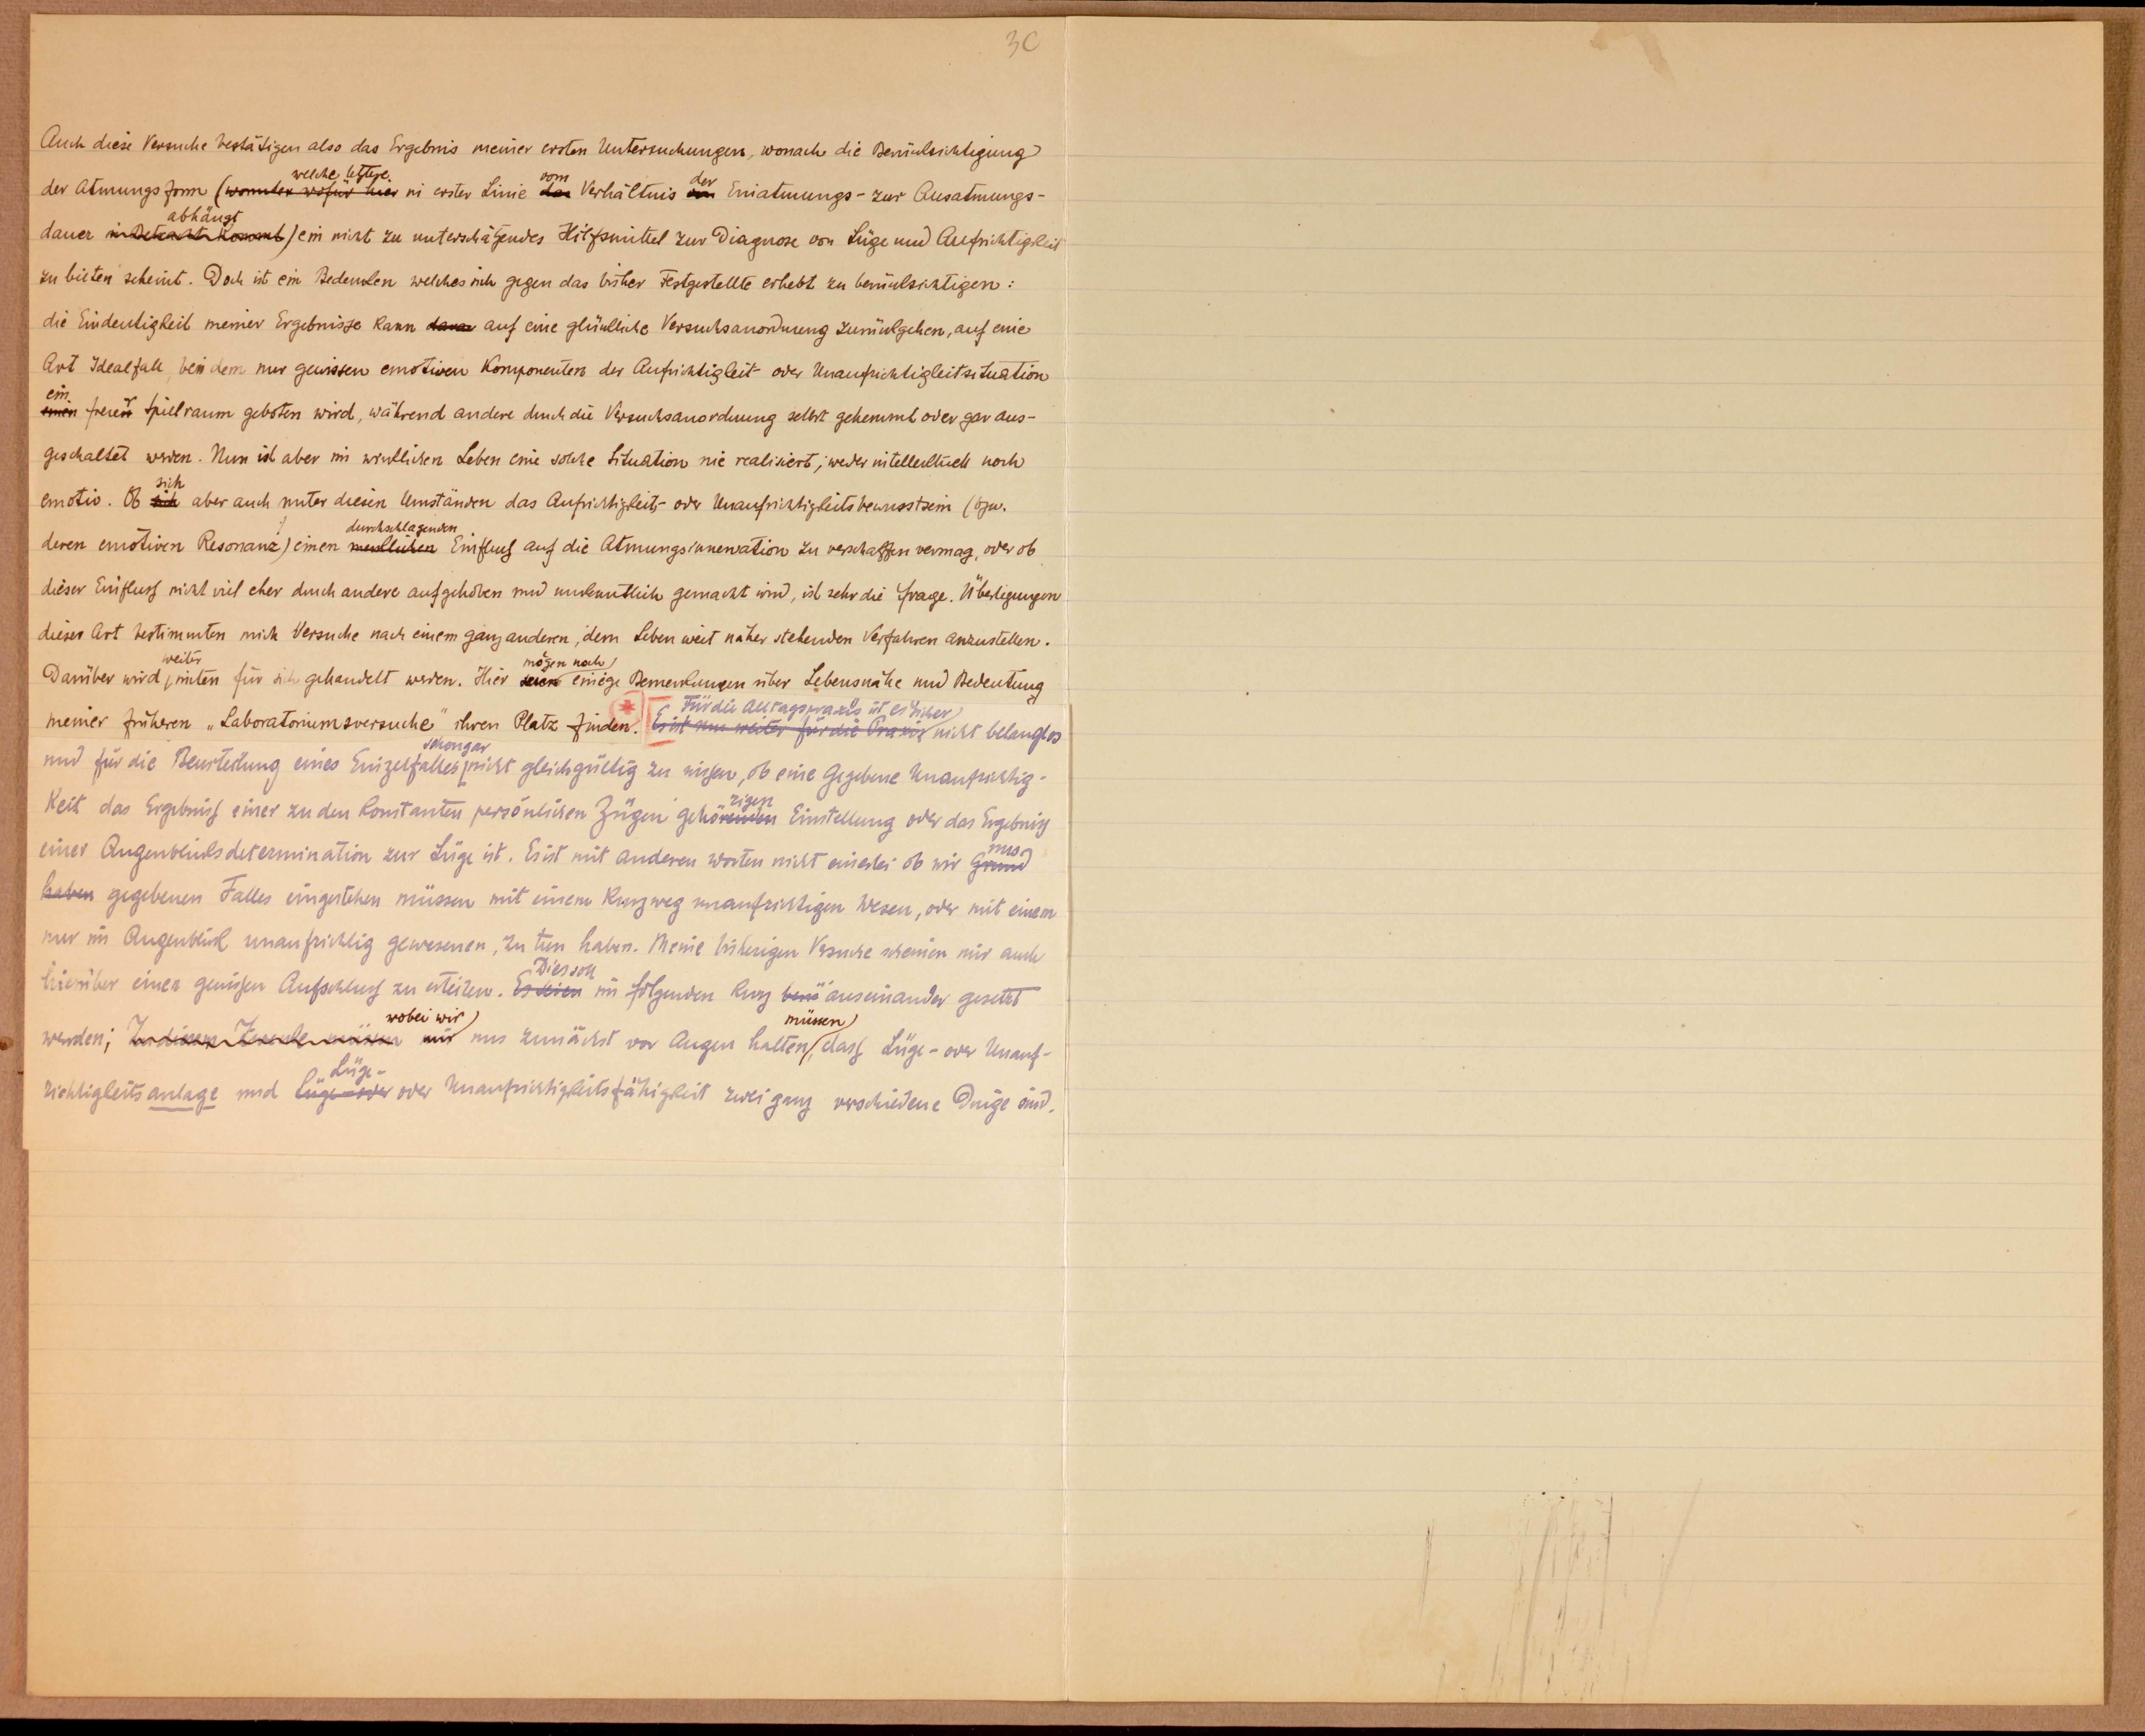 30
Auch diese Versuche bestätigen also das Ergebnis meiner ersten Untersuchungen, wonach die Berücksichtigung
welche letztere vom der
der Atmungsform (womter wofür hier in erster Linie das Verhältnis von Einatmungs- zur Ausatmungs-
abhängt
dauer in Betracht kommt) ein nicht zu unterschätzendes Hilfsmittel zur Diagnose von Lüge und Aufrichtigkeit
zu bieten scheint. Doch ist ein Bedenken welches sich gegen das bisher Festgestellte erhebt zu berücksichtigen:
die Eindeutigkeit meiner Ergebnisse kann daran auf eine glückliche Versuchsanordnung zurückgehen, auf eine
Art Idealfall, bei dem nur gewissen emotiven Komponenten der Aufrichtigkeit- oder Unaufrichtigkeitsituation
ein
einen freier Spielraum geboten wird, während andere durch die Versuchsanordnung selbst gehemmt oder gar aus-
geschaltet werden. Nun ist aber im wirklichen Leben eine solche Situation nie realisiert, weder intellectuell noch
sich
emotiv. Ob sich aber auch unter diesen Umständen das Aufrichtigkeits- oder Unaufrichtigkeitsbewusstsein (bzw.
durchschlagenden
deren emotiven Resonanz) einen merklichen Einfluss auf die Atmungsinnervation zu verschaffen vermag, oder ob
dieser Einfluss nicht viel eher durch andere aufgehoben und unkenntlich gemacht wird, ist sehr die Frage. Überlegungen
dieser Art bestimmten mich Versuche nach einem ganz anderen, dem Leben weit näher stehenden Verfahren anzustellen.
weiter mögen noch
Darüber wird unten für sich gehandelt werden. Hier seien einige Bemerkungen über Lebensnähe und Bedeutung
Für die Alltagspraxis ist es sicher
meiner früheren „Laboratoriumsversuche" ihren Platz finden. * Es ist nun weiter für die Praxis nicht belanglos
schon gar
und für die Beurteilung eines Einzelfalles nicht gleichgültig zu wissen, ob eine gegebene Unaufrichtig-
rigen
keit das Ergebniss einer zu den konstanten persönlichen Zügen gehörenden Einstellung oder das Ergebniss
einer Augenblicksdetermination zur Lüge ist. Es ist mit anderen Worten nicht einerlei ob wir Grund
uns
haben gegebenen Falles eingestehen müssen mit einem kurzweg unaufrichtigen Wesen, oder mit einem
nur im Augenblick unaufrichtig gewesenen, zu tun haben. Meine bisherigen Versuche scheinen mir auch
Dies soll
hierüber einen gewissen Aufschluss zu erteilen. Es seien im folgenden kurz auseinander gesetzt
wobei wir müssen
werden; Zu diesem Zwecke müssen wir uns zunächst vor Augen halten, dass Lüge- oder Unauf-
Lüge-
richtigkeitsanlage und Lüge-oder oder Unaufrichtigkeitsfähigkeit zwei ganz verschiedene Dinge sind.